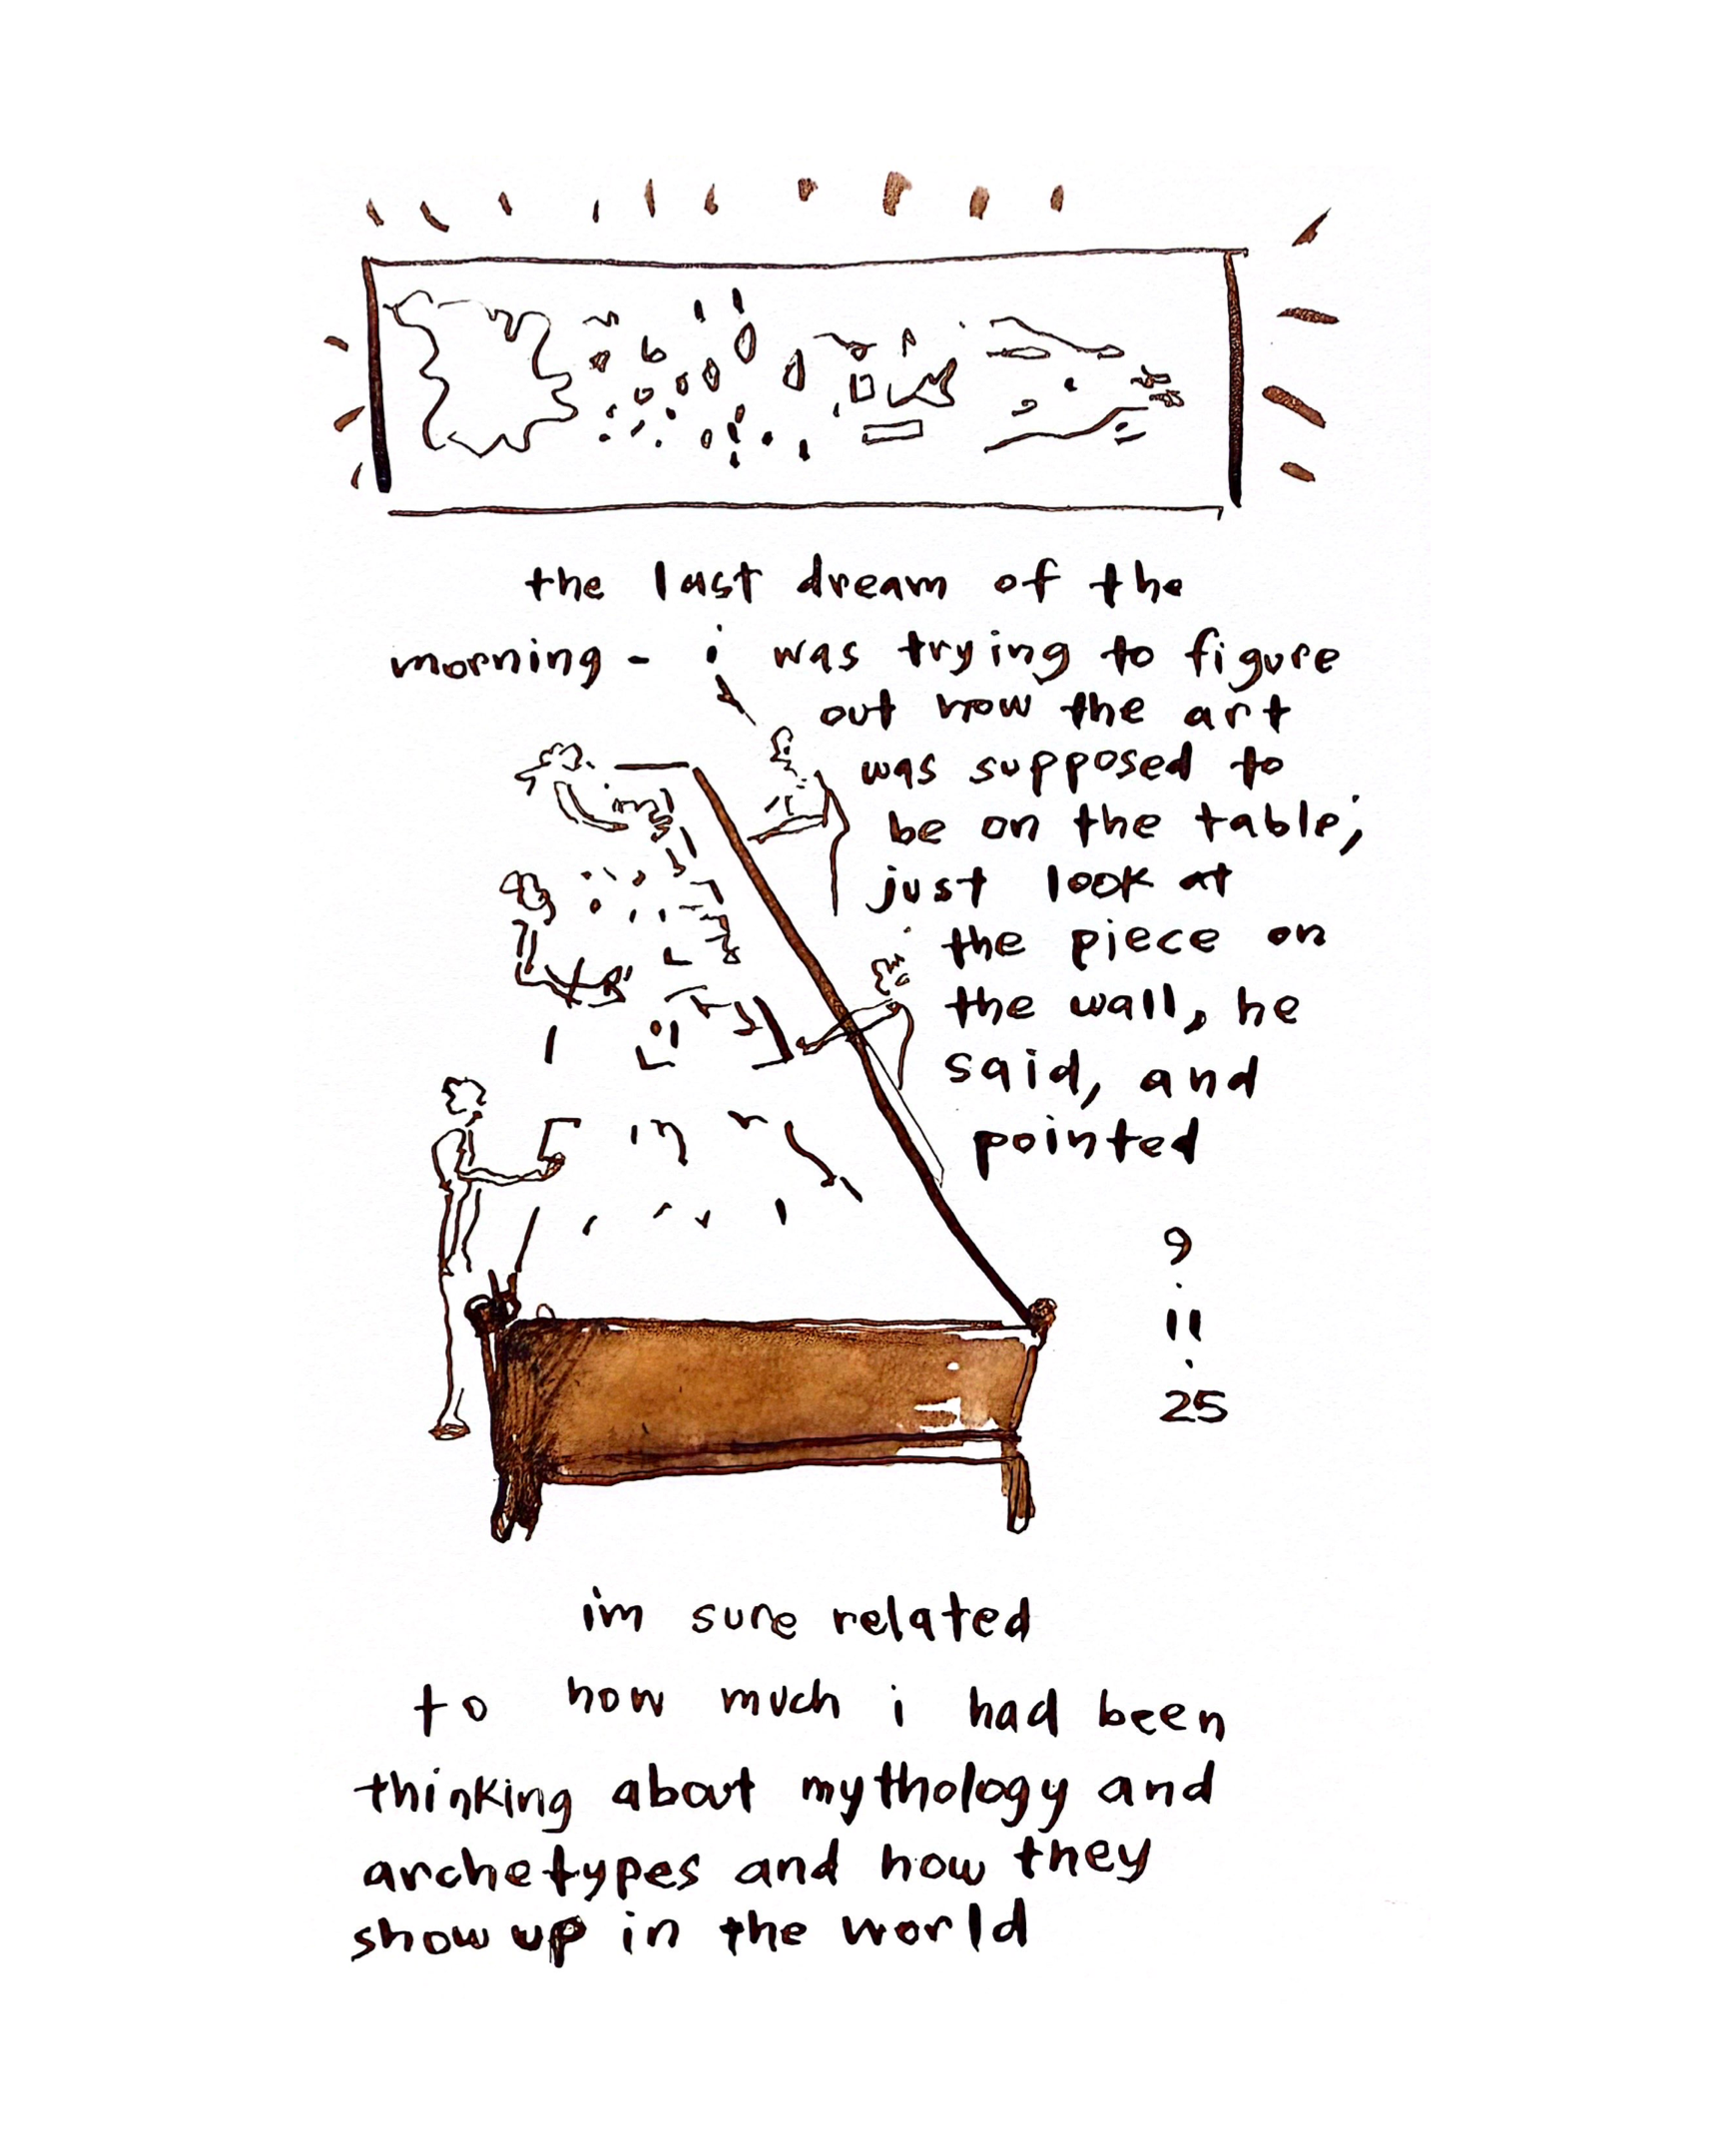 the last dream of the
morning - i was trying to figure
out how the art
was supposed to
be on the table;
just look at
the piece on
the wall, he
said, and
pointed
9
.
11
.
25
im sure related
to how much i had been
thinking about mythology and
archetypes and how they
show up in the world